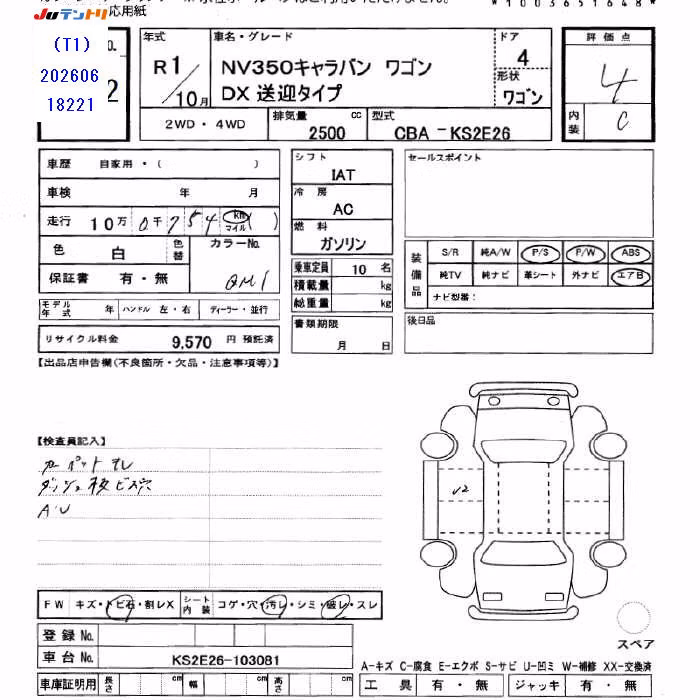 JUテントリ
応用紙
*1003651648*
(T1)
202606
18221
No.
2
年式
R1/10月
車名・グレード
NV350キャラバン ワゴン
DX 送迎タイプ
ドア
4
形状
ワゴン
評価点
4
内装
C
2WD・4WD
排気量
2500 cc
型式
CBA-KS2E26
車歴 自家用・( )
車検 年 月
走行 10万 0千 7 5 4 km マイル ( )
色 白 色替
カラーNo.
QM1
保証書 有・無
モデル年式 年 ハンドル 左・右 ディーラー・並行
リサイクル料金 9,570 円 預託済
シフト
IAT
冷房
AC
燃料
ガソリン
乗車定員 10 名
積載量 kg
総重量 kg
書類期限
月 日
セールスポイント
装備品
S/R 純A/W P/S P/W ABS
純TV 純ナビ 革シート 外ナビ エアB
ナビ型番:
後日品
【出品店申告欄(不良箇所・欠品・注意事項等)】
【検査員記入】
カーペット
ダッシュ ビス穴
AU
U2
FW キズ・トビ石・割レX シート内装 コゲ・穴・汚レ・シミ・破レ・スレ
登録No.
車台No. KS2E26-103081
車庫証明用 長さ cm 幅 cm 高さ cm
スペア
A-キズ C-腐食 E-エクボ S-サビ U-凹ミ W-補修 XX-交換済
工具 有・無 ジャッキ 有・無